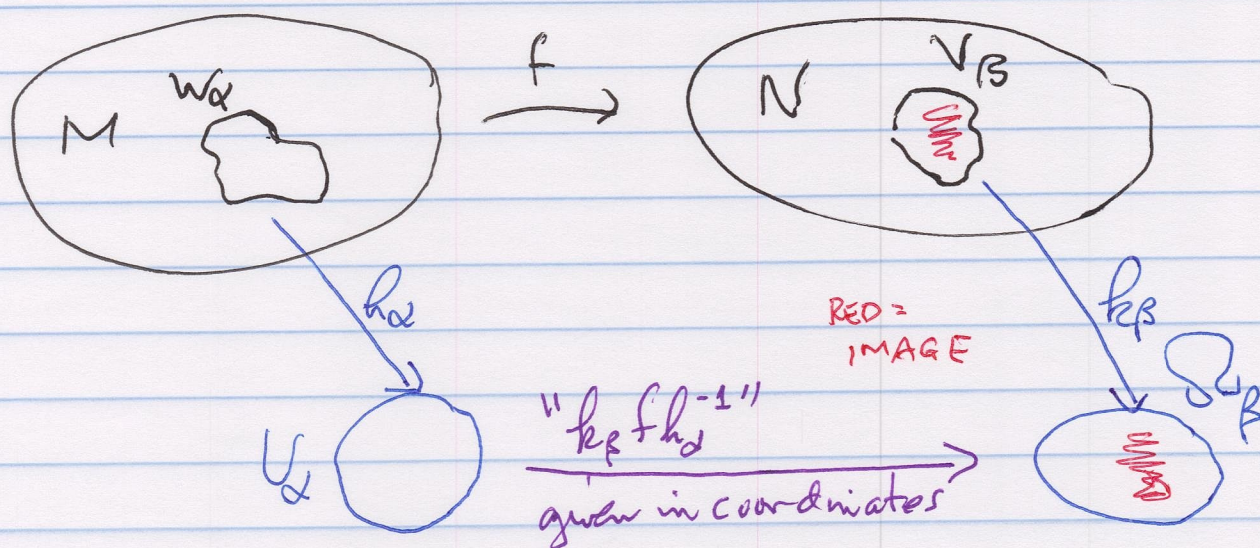 f
M
Wα
N
Vβ
hα
RED =
IMAGE
kβ
Ωβ
Uα
"kβ f hα⁻¹"
given in coordinates